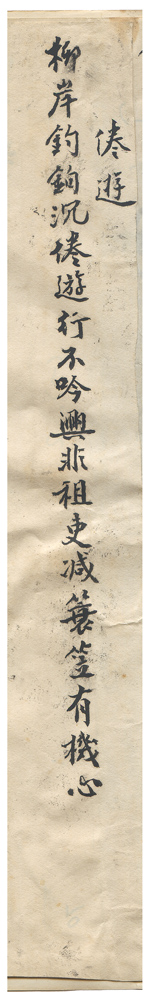 倦遊
柳岸釣鉤沉倦遊行不吟興非祖吏减簑笠有機心